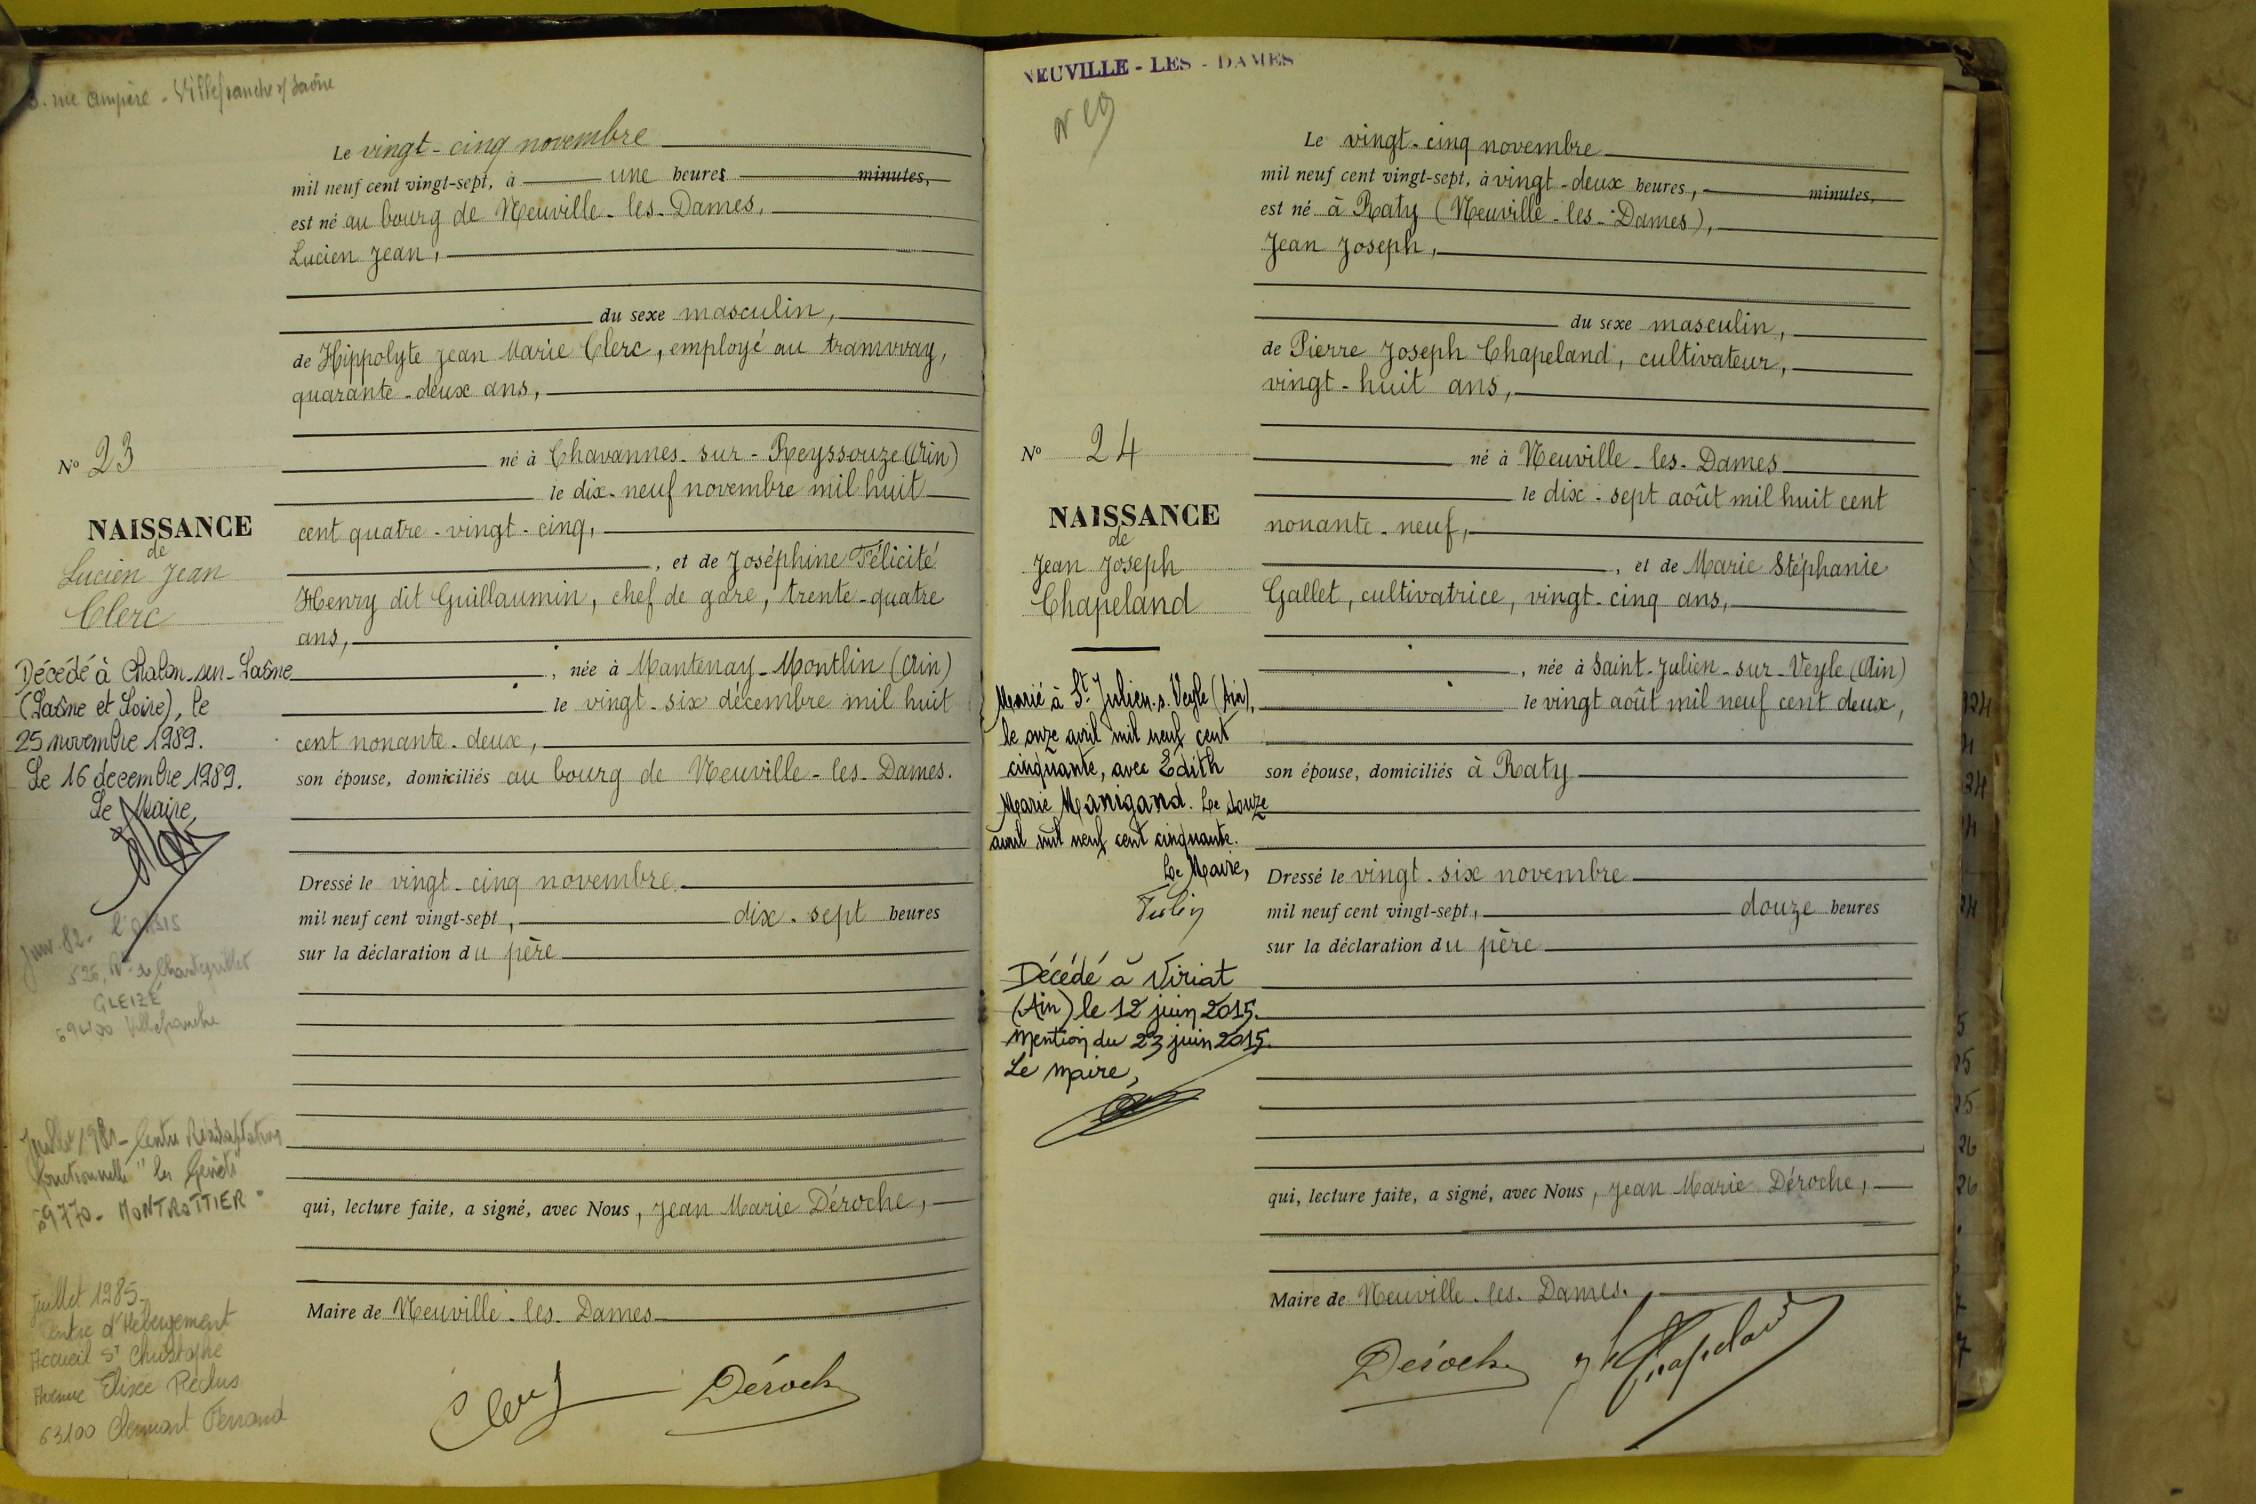 rue Ampère - Villefranche s/ Saône
Le vingt-cinq novembre
mil neuf cent vingt-sept, à une heures minutes,
est né au bourg de Neuville-les-Dames,
Lucien Jean,
du sexe masculin,
de Hippolyte Jean Marie Clerc, employé au tramway,
quarante-deux ans,
né à Chavannes-sur-Reyssouze (Ain)
le dix-neuf novembre mil huit
cent quatre-vingt-cinq,
, et de Joséphine Félicité
Henry dit Guillaumin, chef de gare, trente-quatre
ans,
, née à Mantenay-Montlin (Ain)
le vingt-six décembre mil huit
cent nonante-deux,
son épouse, domiciliés au bourg de Neuville-les-Dames.
Dressé le vingt-cinq novembre
mil neuf cent vingt-sept, dix-sept heures
sur la déclaration du père
qui, lecture faite, a signé, avec Nous, Jean Marie Déroche,
Maire de Neuville-les-Dames
Clerc Déroche
N° 23
NAISSANCE
de
Lucien Jean
Clerc
Décédé à Chalon-sur-Saône
(Saône et Loire), le
25 novembre 1989.
Le 16 decembre 1989.
Le Maire,
Janv. 82 - l'OASIS
GLEIZÉ
69400 Villefranche
Centre Réadaptation
fonctionnelle "les Genêts"
69770 - MONTROTTIER
Juillet 1985-
Centre d'Hébergement
Accueil St Christophe
Avenue Elisée Reclus
63100 Clermont Ferrand
NEUVILLE-LES-DAMES
Le vingt-cinq novembre
mil neuf cent vingt-sept, à vingt-deux heures, minutes,
est né à Raty (Neuville-les-Dames),
Jean Joseph,
du sexe masculin,
de Pierre Joseph Chapeland, cultivateur,
vingt-huit ans,
né à Neuville-les-Dames
le dix-sept août mil huit cent
nonante-neuf,
, et de Marie Stéphanie
Gallet, cultivatrice, vingt-cinq ans,
, née à Saint-Julien-sur-Veyle (Ain)
le vingt août mil neuf cent deux,
son épouse, domiciliés à Raty
Dressé le vingt-six novembre
mil neuf cent vingt-sept, douze heures
sur la déclaration du père
qui, lecture faite, a signé, avec Nous, Jean Marie Déroche,
Maire de Neuville-les-Dames.
Déroche Chapeland
N° 24
NAISSANCE
de
Jean Joseph
Chapeland
Marié à St Julien s. Veyle (Ain),
le onze avril mil neuf cent
cinquante, avec Edith
Marie Manigand. Le douze
avril mil neuf cent cinquante.
Le Maire,
Décédé à Viriat
(Ain) le 12 juin 2015.
Mention du 23 juin 2015.
Le maire,